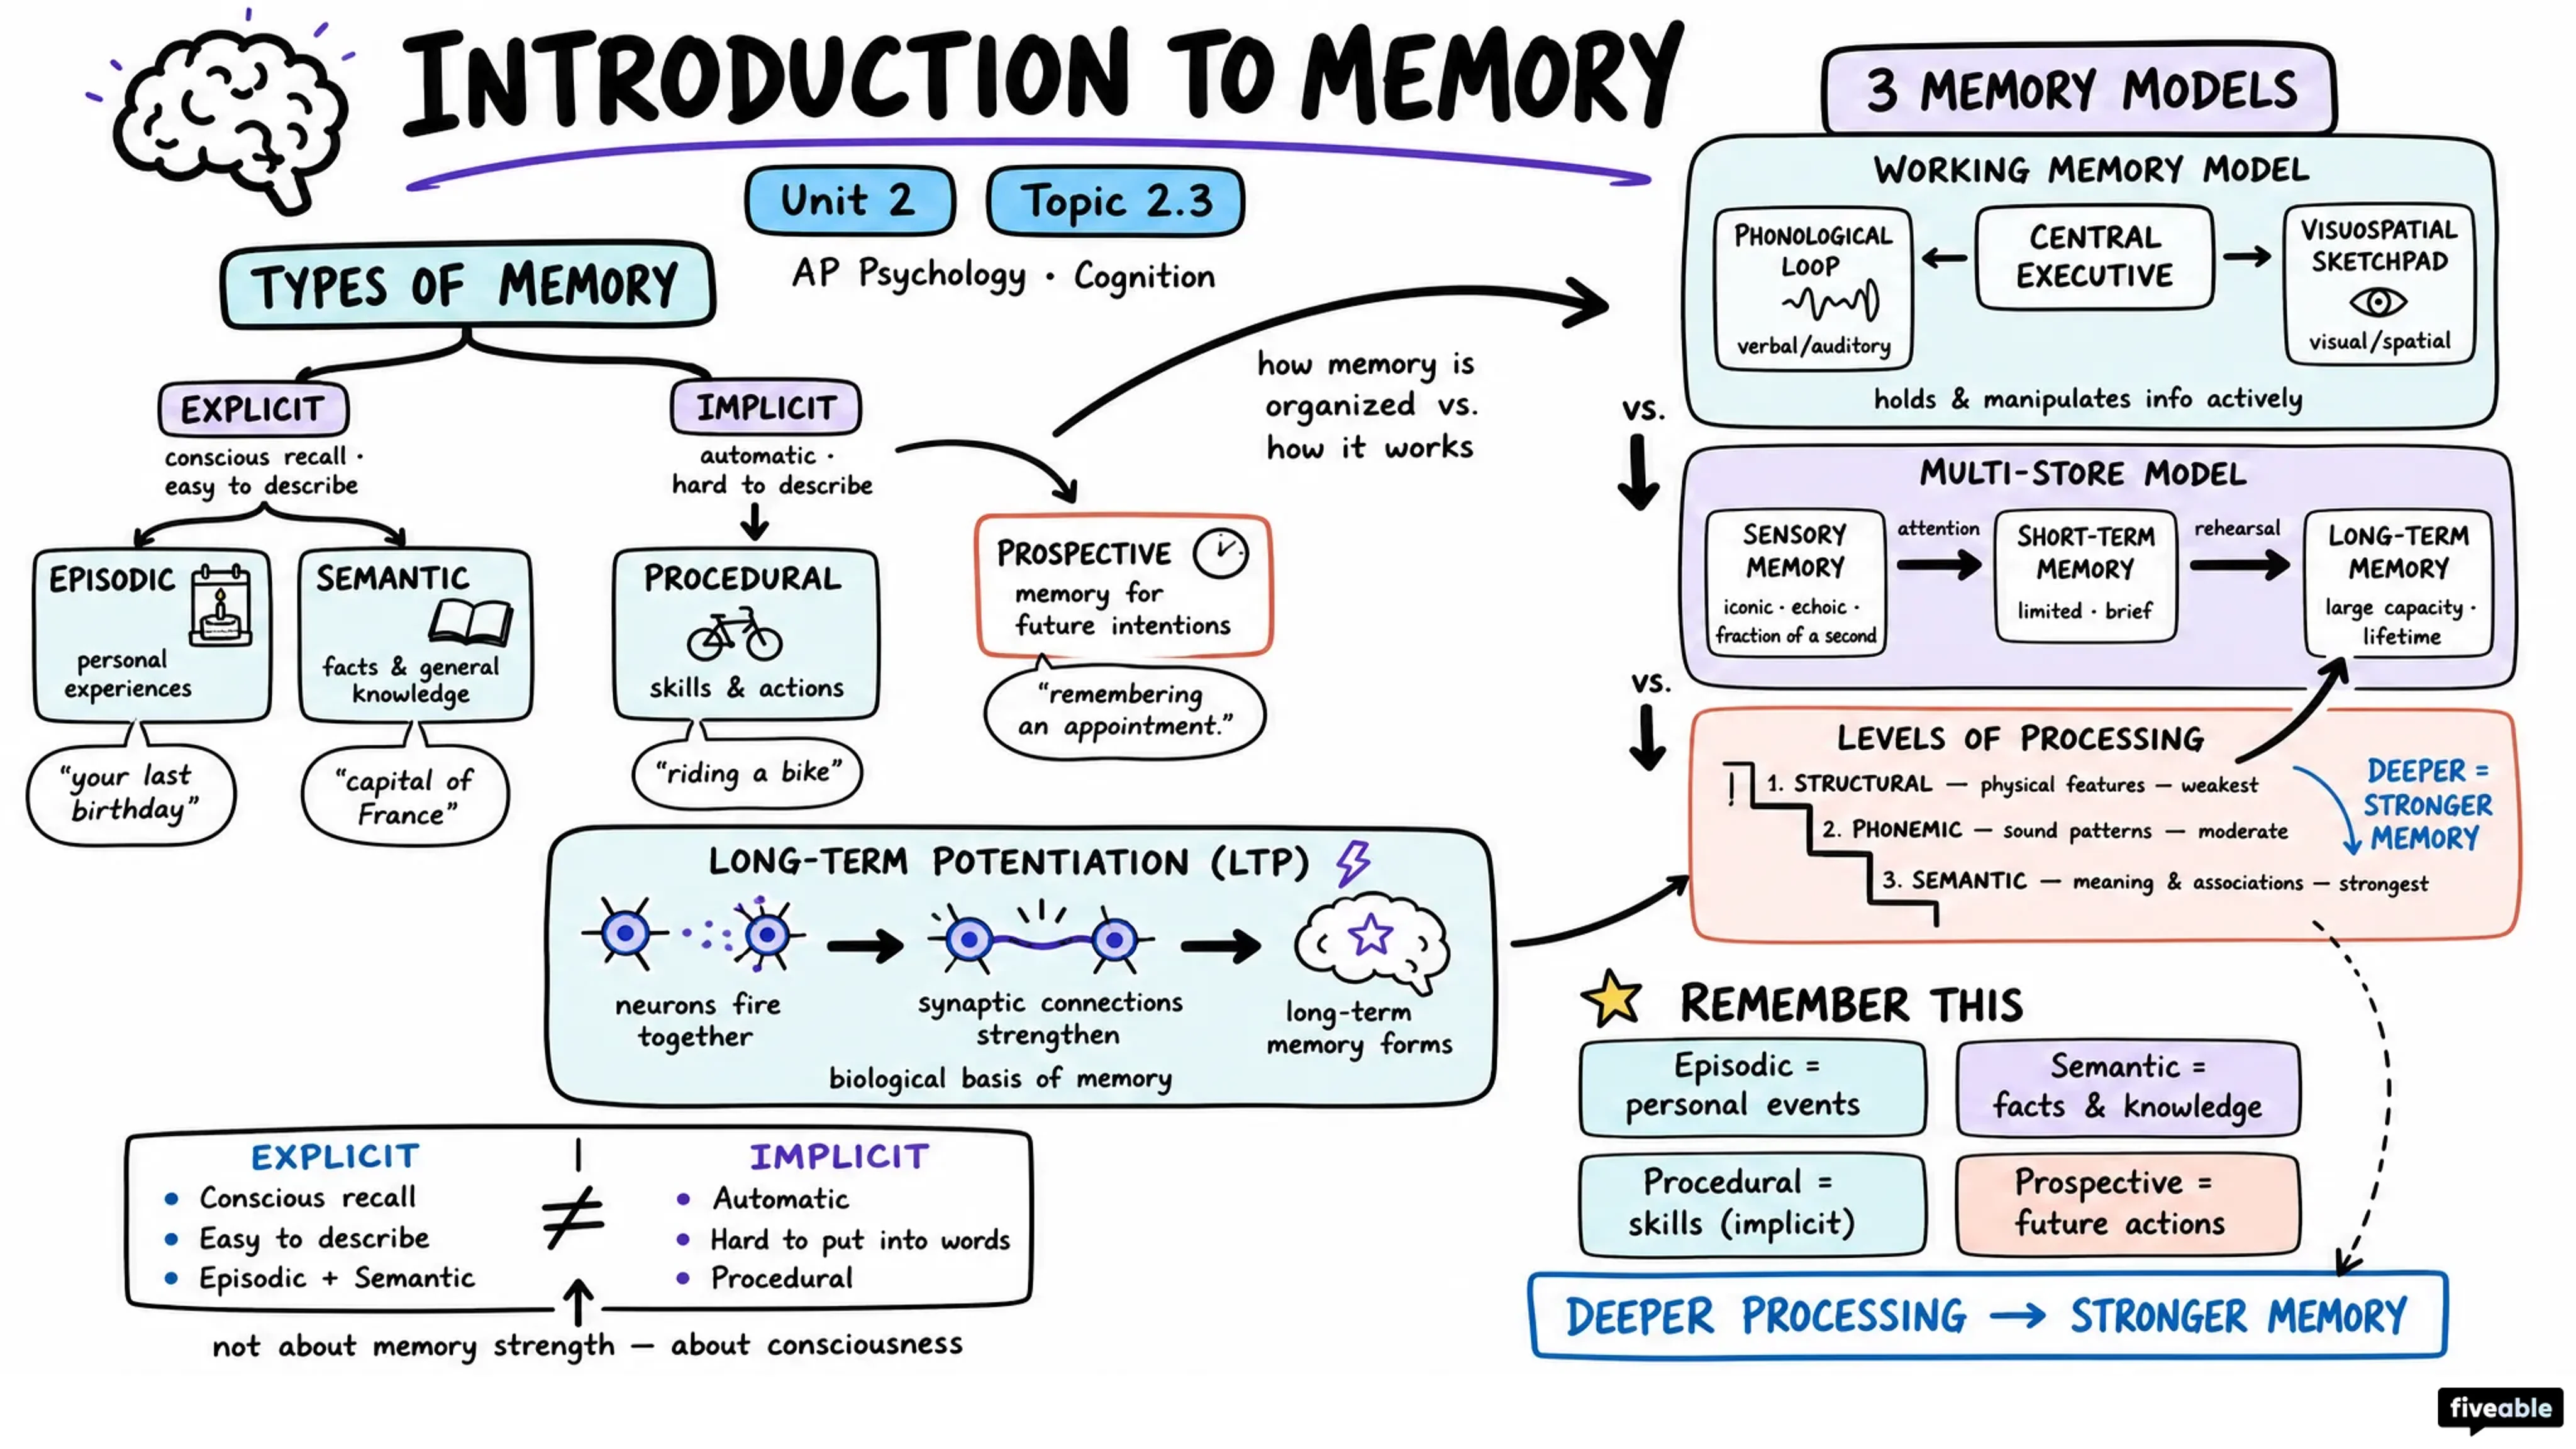 INTRODUCTION TO MEMORY
Unit 2
Topic 2.3
AP Psychology · Cognition
TYPES OF MEMORY
EXPLICIT
conscious recall ·
easy to describe
IMPLICIT
automatic ·
hard to describe
EPISODIC
personal
experiences
"your last
birthday"
SEMANTIC
facts & general
knowledge
"capital of
France"
PROCEDURAL
skills & actions
"riding a bike"
PROSPECTIVE
memory for
future intentions
"remembering
an appointment."
how memory is
organized vs.
how it works
3 MEMORY MODELS
WORKING MEMORY MODEL
PHONOLOGICAL
LOOP
verbal/auditory
CENTRAL
EXECUTIVE
VISUOSPATIAL
SKETCHPAD
visual/spatial
holds & manipulates info actively
vs.
MULTI-STORE MODEL
SENSORY
MEMORY
iconic · echoic ·
fraction of a second
attention
SHORT-TERM
MEMORY
limited · brief
rehearsal
LONG-TERM
MEMORY
large capacity ·
lifetime
vs.
LEVELS OF PROCESSING
1. STRUCTURAL — physical features — weakest
2. PHONEMIC — sound patterns — moderate
3. SEMANTIC — meaning & associations — strongest
DEEPER =
STRONGER
MEMORY
LONG-TERM POTENTIATION (LTP)
neurons fire
together
synaptic connections
strengthen
long-term
memory forms
biological basis of memory
EXPLICIT
• Conscious recall
• Easy to describe
• Episodic + Semantic
≠
IMPLICIT
• Automatic
• Hard to put into words
• Procedural
not about memory strength — about consciousness
REMEMBER THIS
Episodic =
personal events
Semantic =
facts & knowledge
Procedural =
skills (implicit)
Prospective =
future actions
DEEPER PROCESSING → STRONGER MEMORY
fiveable